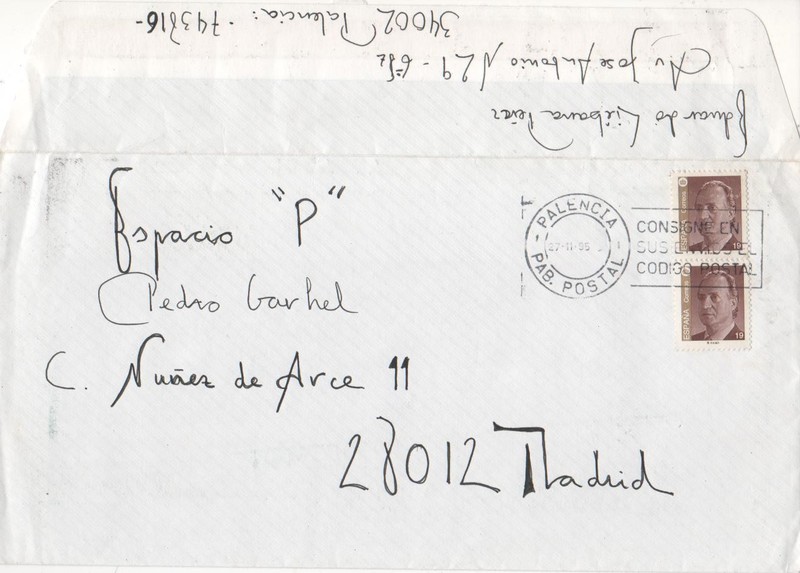 Eduardo Liébana Pérez
Av. Jose Antonio Nº 29 -
34002 Palencia: -743816-
Espacio "P"
Pedro Garhel
C. Nuñez de Arce 11
28012 Madrid
PALENCIA
27-11-95
PAB. POSTAL
CONSIGNE EN
SUS ENVIOS EL
CODIGO POSTAL
ESPAÑA Correos
19
ESPAÑA Correos
19